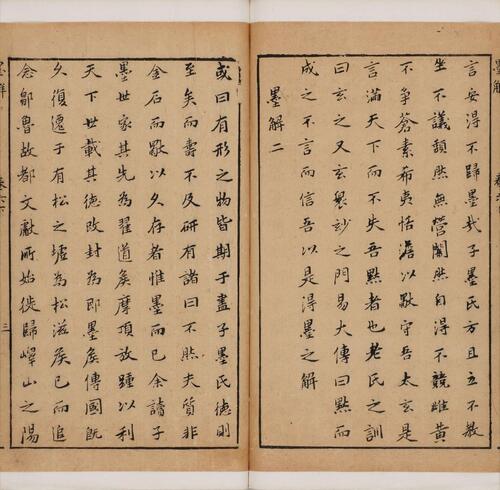 言安得不歸墨哉子墨氏方且立不教
坐不議頹然無營闇然自得不競雌黃
不爭蒼素希夷恬澹以默守吾太玄是
言滿天下而不失吾默者也老氏之訓
曰玄之又玄衆妙之門易大傳曰默而
成之不言而信吾以是得墨之解
墨解二
或曰有形之物皆期于盡子墨氏德則
至矣而壽不及研有諸曰不然夫質非
金石而歇以久存者惟墨而已余讀子
墨世家其先為翟道矦摩頂放踵以利
天下世載其德改封為即墨矦傳國既
久復遷于有松之墟為松滋矦已而追
念鄒魯故都文獻所始徙歸嶧山之陽
墨解
三